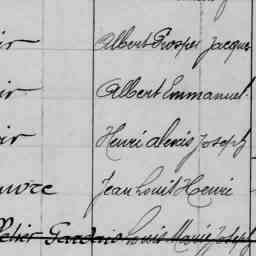 ir Albert Prosper Jacques
ir Albert Emmanuel.
ir Henri Alexis Joseph
uvre Jean Louis Henri
Letier Gardais Louis Marie Joseph